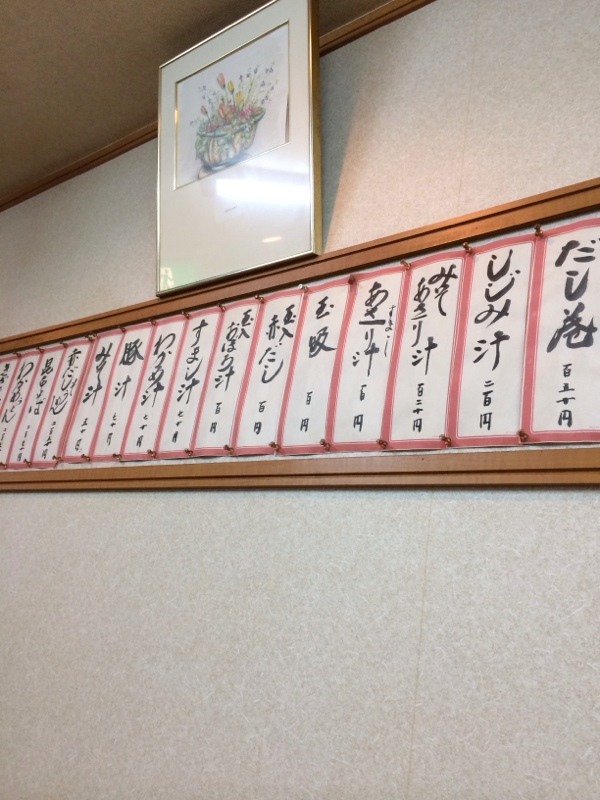 だし巻 百五十円
しじみ汁 二百円
みそあさり汁 百二十円
あさり汁 すまし 百円
玉吸 百円
玉入赤だし 百円
玉入おぼろ汁 百円
すまし汁 七十円
わかめ汁 七十円
豚汁 七十円
みそ汁 五十円
赤だしうどん
昆布そば
わかめうどん